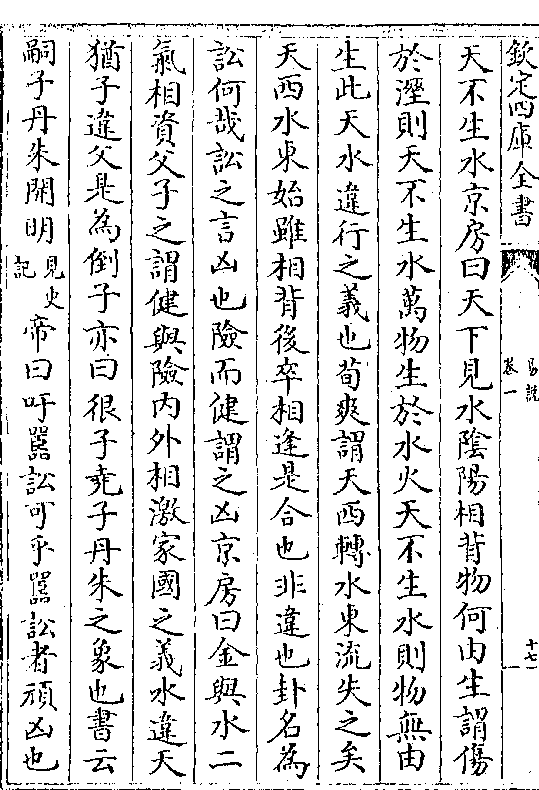 欽定四庫全書
易說
卷一
十七
天不生水京房曰天下見水陰陽相背物何由生謂傷
於溼則天不生水萬物生於水火天不生水則物無由
生此天水違行之義也荀爽謂天西轉水東流失之矣
天西水東始雖相背後卒相逢是合也非違也卦名為
訟何哉訟之言凶也險而健謂之凶京房曰金與水二
氣相資父子之謂健與險内外相激家國之義水違天
猶子違父是為倒子亦曰很子堯子丹朱之象也書云
嗣子丹朱開明見史記帝曰吁嚚訟可乎嚚訟者頑凶也